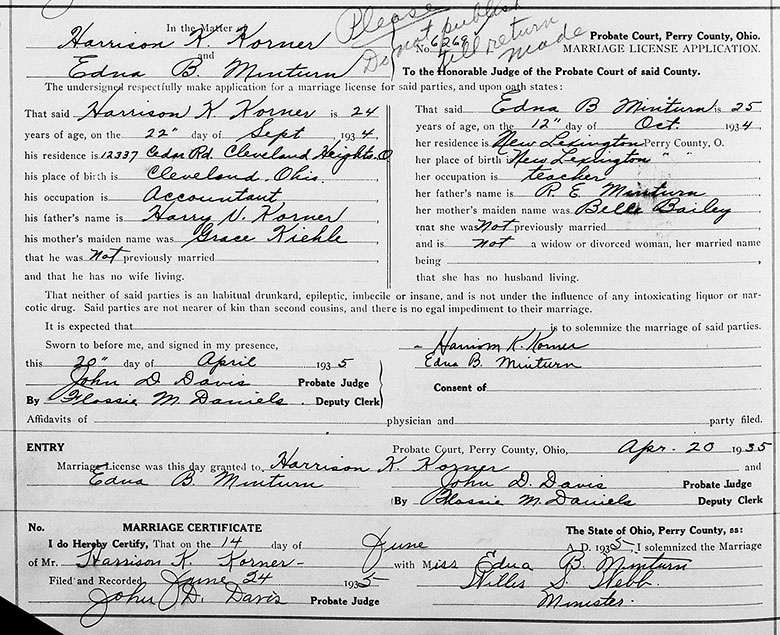 In the Matter of
Please
Do not publish
till return
made
Harrison K. Korner
and
Edna B. Minturn
No. 6269
Probate Court, Perry County, Ohio.
MARRIAGE LICENSE APPLICATION.
To the Honorable Judge of the Probate Court of said County.
The undersigned respectfully make application for a marriage license for said parties, and upon oath states:
That said Harrison K. Korner is 24
years of age, on the 22" day of Sept, 1934,
his residence is 12337 Cedar Rd. Cleveland Heights, O
his place of birth is Cleveland, Ohio.
his occupation is Accountant
his father's name is Harry V. Korner
his mother's maiden name was Grace Kiehle,
that he was Not previously married
and that he has no wife living.
That said Edna B Minturn is 25
years of age, on the 12" day of Oct. 1934
her residence is New Lexington Perry County, O.
her place of birth is New Lexington " "
her occupation is teacher
her father's name is R. E. Minturn
her mother's maiden name was Belle Bailey
that she was Not previously married
and is not a widow or divorced woman, her married name
being
that she has no husband living.
That neither of said parties is an habitual drunkard, epileptic, imbecile or insane, and is not under the influence of any intoxicating liquor or nar-
cotic drug. Said parties are not nearer of kin than second cousins, and there is no egal impediment to their marriage.
It is expected that is to solemnize the marriage of said parties.
Sworn to before me, and signed in my presence,
this 20" day of April 1935
John D. Davis Probate Judge
By Flossie M. Daniels. Deputy Clerk
Harrison K. Korner
Edna B. Minturn
Consent of
Affidavits of physician and party filed.
ENTRY
Probate Court, Perry County, Ohio, Apr. 20 1935
Marriage License was this day granted to Harrison K. Korner and
Edna B Minturn
John D. Davis Probate Judge
By Flossie M. Daniels Deputy Clerk
No. MARRIAGE CERTIFICATE
The State of Ohio, Perry County, ss:
I do Hereby Certify, That on the 14 day of June A. D. 1935, I solemnized the Marriage
of Mr. Harrison K. Korner with Miss Edna B. Minturn
Filed and Recorded June 24 1935
Willis S. Webb.
John D. Davis Probate Judge
Minister.